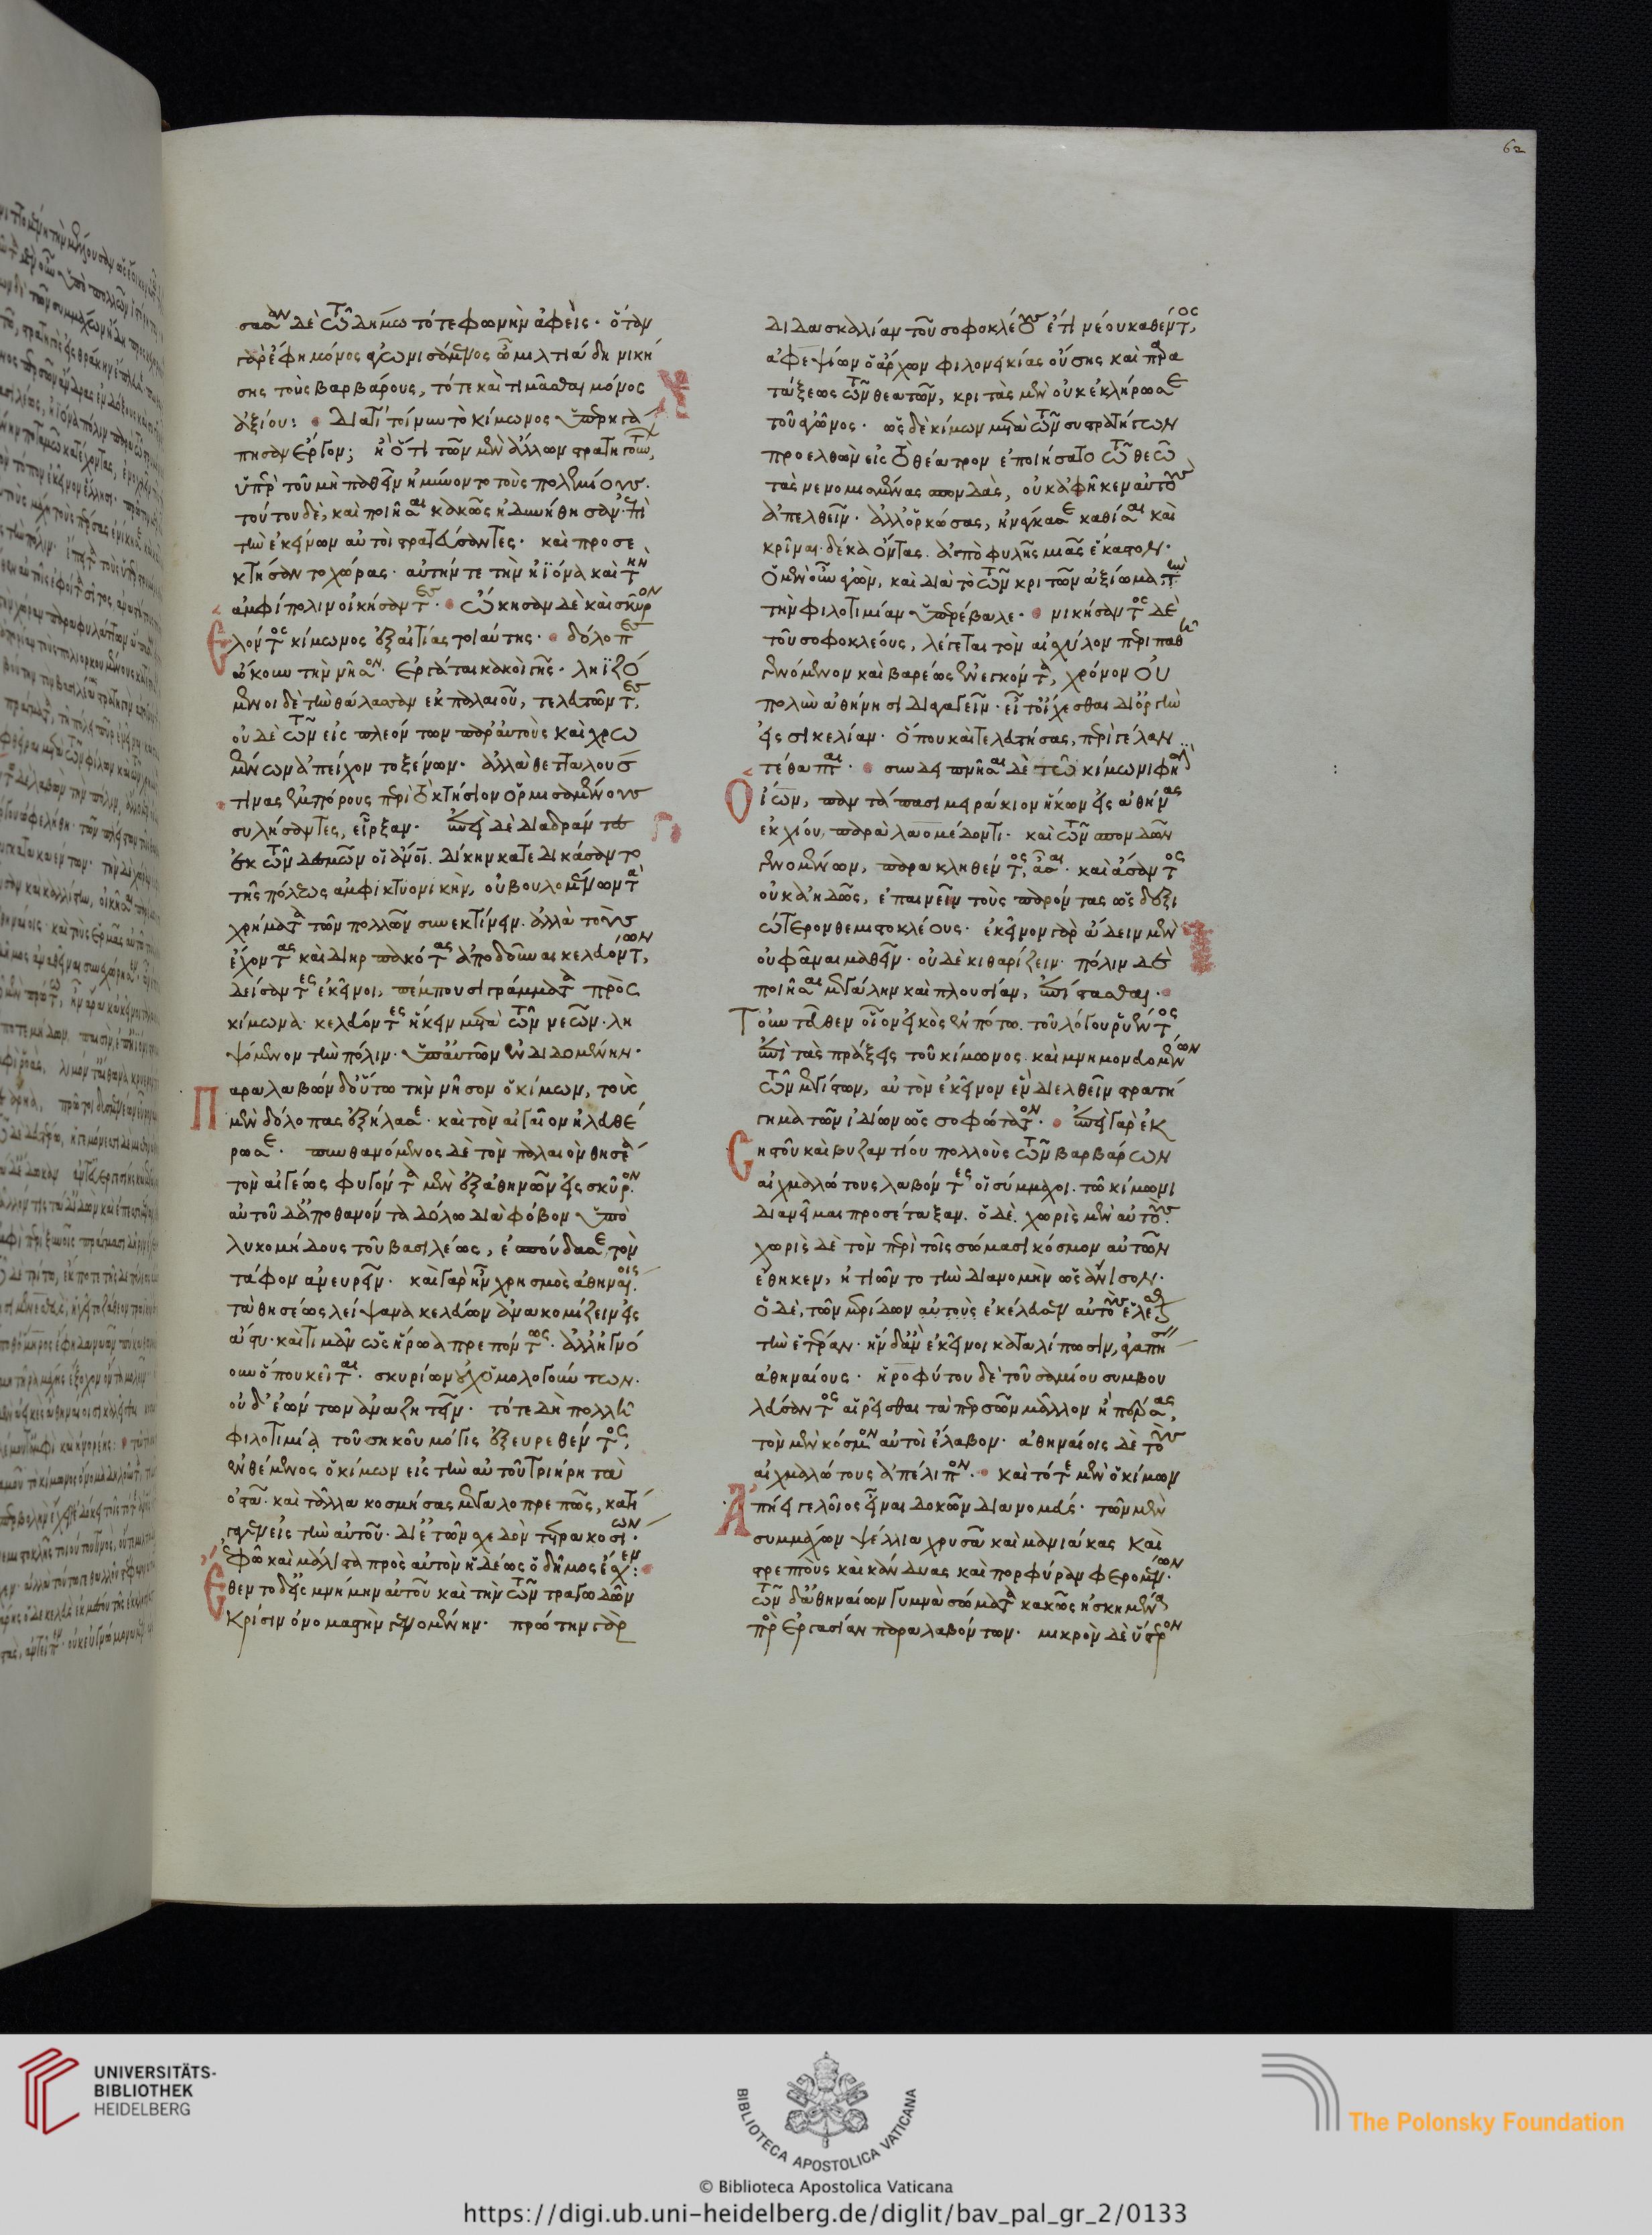 σασαν δὲ τῶ δήμω τότε φωνὴν ἀφεὶς· ὅταν
γὰρ ἔφη μόνος ἀγωνισάμενος ὦ μιλτιάδη νική
σης τοὺς βαρβάρους, τότε καὶ τιμᾶσθαι μόνος
ἀξίου: διατί τοίνυν τὸ κίμωνος ὑπερηγά
πησαν ἔργον; ἢ ὅτι τῶν μὲν ἄλλων στρατηγούντων,
ὑπὲρ τοῦ μὴ παθεῖν ἠμύνοντο τοὺς πολεμίους.
τούτου δὲ, καὶ ποιῆσαι κακῶς ἠδυνήθησαν· ἐπὶ
τὴν ἐκείνων αὐτοὶ στρατεύσαντες· καὶ προσε
κτήσαντο χώρας· αὐτήν τε τὴν ἠϊόνα καὶ τὴν
ἀμφίπολιν οἰκήσαντες· ὤκησαν δὲ καὶ σκῦρον
ἑλόντος κίμωνος ἐξ αἰτίας τοιαύτης· δόλοπες
ὤκουν τὴν νῆσον· ἐργάται κακοὶ γῆς· ληϊζό
μενοι δὲ τὴν θάλασσαν ἐκ παλαιοῦ, τελευτῶντες
οὐδὲ τῶν εἰσπλεόντων παρ' αὐτοὺς καὶ χρω
μένων ἀπείχοντο ξένων· ἀλλὰ θετταλούς
τινας ἐμπόρους περὶ τὸ κτήσιον ὁρμισαμένους
συλήσαντες, εἶρξαν· ἐπεὶ δὲ διαδράντες
ἐκ τῶν δεσμῶν οἱ ἄνοι. δίκην κατεδικάσαντο
τῆς πόλεως ἀμφικτυονικὴν, οὐ βουλομένων τὰ
χρήματα τῶν πολλῶν συνεκτίνειν· ἀλλὰ τοὺς
ἔχοντας καὶ διηρπακότας ἀποδοῦναι κελευόντων,
δείσαντες ἐκεῖνοι, πέμπουσι γράμματα πρὸς
κίμωνα κελεύοντες ἥκειν μετὰ τῶν νεῶν λη
ψόμενον τὴν πόλιν ὑπ' αὐτῶν ἐνδιδομένην·
Παραλαβὼν δ' οὕτω τὴν νῆσον ὁ κίμων, τοὺς
μὲν δόλοπας ἐξήλασε· καὶ τὸν αἰγαῖον ἠλευθέ
ρωσε· πυνθανόμενος δὲ τὸν παλαιὸν θησέα
τὸν αἰγέως φυγόντα μὲν ἐξ ἀθηνῶν εἰς σκῦρον.
αὐτοῦ δ' ἀποθανόντα δόλω διὰ φόβον ὑπὸ
λυκομήδους τοῦ βασιλέως, ἐσπούδασε τὸν
τάφον ἀνευρεῖν· καὶ γὰρ ἦν χρησμὸς ἀθηναίοις.
τὰ θησέως λείψανα κελεύων ἀνακομίζειν εἰς
ἄστυ· καὶ τιμᾶν ὡς ἥρωα πρεπόντως· ἀλλ' ἠγνό
ουν ὅπου κεῖται· σκυρίων οὐχ' ὁμολογούντων·
οὐδ' ἐώντων ἀναζητεῖν· τότε δὴ πολλῆ
φιλοτιμία τοῦ σηκοῦ μόγις ἐξευρεθέντος,
ἐνθέμενος ὁ κίμων εἰς τὴν αὐτοῦ τριήρη τὰ
ὀστᾶ· καὶ τἄλλα κοσμήσας μεγαλοπρεπῶς, κατή
γαγεν εἰς τὴν αὐτοῦ· δι' ἐτῶν σχεδὸν τετρακοσίων·
ἐφ' ᾧ καὶ μάλιστα πρὸς αὐτὸν ἡδέως ὁ δῆμος ἔσχεν:
Ἔθεντο δ' εἰς μνήμην αὐτοῦ καὶ τὴν τῶν τραγωδῶν
κρίσιν ὀνομαστὴν γενομένην· πρώτην γὰρ
διδασκαλίαν τοῦ σοφοκλέους ἔτι νέου καθέντος,
ἀφεψίων ὁ ἄρχων φιλονεικίας οὔσης καὶ παρα
τάξεως τῶν θεατῶν, κριτὰς μὲν οὐκ ἐκλήρωσε
τοῦ ἀγῶνος· ὡς δὲ κίμων μετὰ τῶν συστρατήγων
προελθὼν εἰς τὸ θέατρον ἐποιήσατο τῶ θεῶ
τὰς νενομισμένας σπονδὰς, οὐκ ἀφῆκεν αὐτοὺς
ἀπελθεῖν· ἀλλ' ὁρκώσας, ἠνάγκασε καθίσαι καὶ
κρῖναι· δέκα ὄντας. ἀπὸ φυλῆς μιᾶς ἕκαστον·
ὁ μὲν οὖν ἀγὼν, καὶ διὰ τὸ τῶν κριτῶν ἀξίωμα, τὴν
τὴν φιλοτιμίαν ὑπερέβαλε· νικήσαντος δὲ
τοῦ σοφοκλέους, λέγεται τὸν αἰσχύλον περιπαθῆ
γενόμενον καὶ βαρέως ἐνεγκόντα, χρόνον οὐ
πολὺν ἀθήνησι διαγαγεῖν· εἶτ' οἴχεσθαι δι' ὀργὴν
εἰς σικελίαν· ὅπου καὶ τελευτήσας, περὶ γέλαν
τέθαπται· συνδειπνῆσαι δὲ τῶ κίμωνι φησὶν
Ὁ ἴων, παντάπασι μειράκιον ἥκων εἰς ἀθήνας
ἐκ χίου, παρὰ λαομέδοντι· καὶ τῶν σπονδῶν
γενομένων, παρακληθέντος, ἆσαι· καὶ ἄσαντος
οὐκ ἀηδῶς, ἐπαινεῖν τοὺς παρόντας ὡς δεξι
ώτερον θεμιστοκλέους· ἐκεῖνον γὰρ ἄδειν μὲν
οὐ φάναι μαθεῖν· οὐδὲ κιθαρίζειν· πόλιν δὲ
ποιῆσαι μεγάλην καὶ πλουσίαν, ἐπίστασθαι·
Τοὐντεῦθεν οἷον εἰκὸς ἐν πότω. τοῦ λόγου ῥυέντος
ἐπὶ τὰς πράξεις τοῦ κίμωνος. καὶ μνημονευομένων
τῶν μεγίστων, αὐτὸν ἐκεῖνον ἓν διελθεῖν στρατή
γημα τῶν ἰδίων ὡς σοφώτατον· ἐπεὶ γὰρ ἐκ
Σηστοῦ καὶ βυζαντίου πολλοὺς τῶν βαρβάρων
αἰχμαλώτους λαβόντες οἱ σύμμαχοι. τῶ κίμωνι
διανεῖμαι προσέταξαν. ὁ δὲ. χωρὶς μὲν αὐτούς·
χωρὶς δὲ τὸν περὶ τοῖς σώμασι κόσμον αὐτῶν
ἔθηκεν, ἠτιῶντο τὴν διανομὴν ὡς ἄνισον·
ὁ δὲ, τῶν μερίδων αὐτοὺς ἐκέλευσεν αὐτοὺς ἑλέσθαι
τὴν ἑτέραν· ἣν δ' ἂν ἐκεῖνοι καταλίπωσιν, ἀγαπήσειν
ἀθηναίους· ἡροφύτου δὲ τοῦ σαμίου συμβου
λεύσαντος αἱρεῖσθαι τὰ περσῶν μᾶλλον ἢ πέρσας,
τὸν μὲν κόσμον αὐτοὶ ἔλαβον· ἀθηναίοις δὲ τοὺς
αἰχμαλώτους ἀπέλιπον· καὶ τότε μὲν ὁ κίμων
Ἀπήει γελοῖος εἶναι δοκῶν διανομεύς· τῶν μὲν
συμμάχων ψέλλια χρυσᾶ καὶ μανιάκας καὶ
στρεπτοὺς καὶ κάνδυας καὶ πορφύραν φερομένων·
τῶν δ' ἀθηναίων γυμνὰ σώματα κακῶς ἠσκημένα
πρὸς ἐργασίαν παραλαβόντων· μικρὸν δὲ ὕστερον
62
UNIVERSITÄTS-
BIBLIOTHEK
HEIDELBERG
BIBLIOTECA APOSTOLICA VATICANA
© Biblioteca Apostolica Vaticana
The Polonsky Foundation
https://digi.ub.uni-heidelberg.de/diglit/bav_pal_gr_2/0133